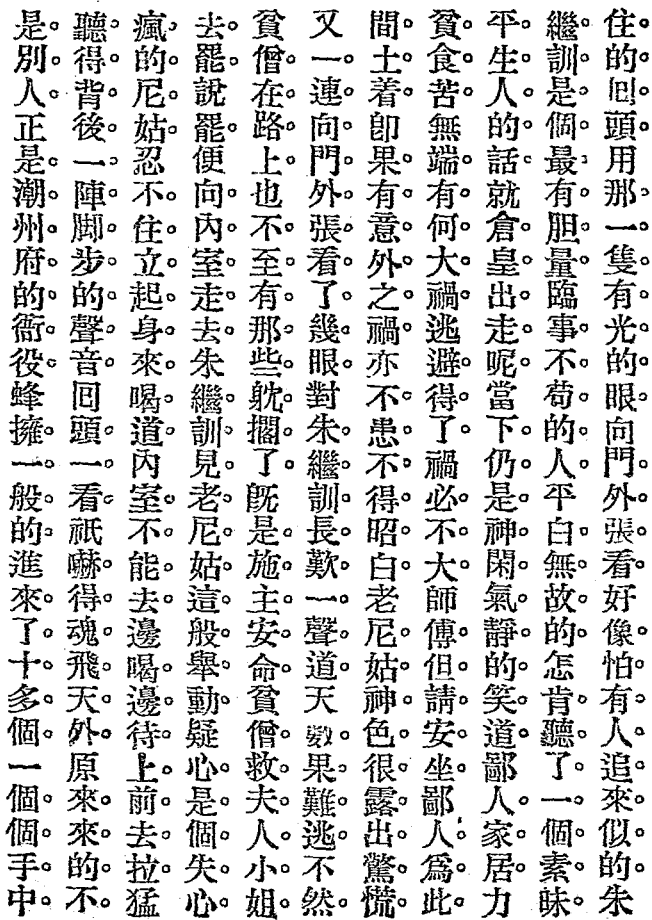 住的回頭用那一隻有光的眼向門外張看好像怕有人追來似的朱
繼訓是個最有胆量臨事不苟的人平白無故的怎肯聽了一個素昧
平生人的話就倉皇出走呢當下仍是神閑氣靜的笑道鄙人家居力
貧食苦無端有何大禍逃避得了禍必不大師傅但請安坐鄙人爲此
間土着卽果有意外之禍亦不患不得昭白老尼姑神色很露出驚慌
又一連向門外張看了幾眼對朱繼訓長歎一聲道天數果難逃不然
貧僧在路上也不至有那些躭擱了旣是施主安命貧僧救夫人小姐
去罷說罷便向內室走去朱繼訓見老尼姑這般舉動疑心是個失心
瘋的尼姑忍不住立起身來喝道內室不能去邊喝邊待上前去拉猛
聽得背後一陣脚步的聲音回頭一看祇嚇得魂飛天外原來來的不
是別人正是潮州府的衙役蜂擁一般的進來了十多個一個個手中